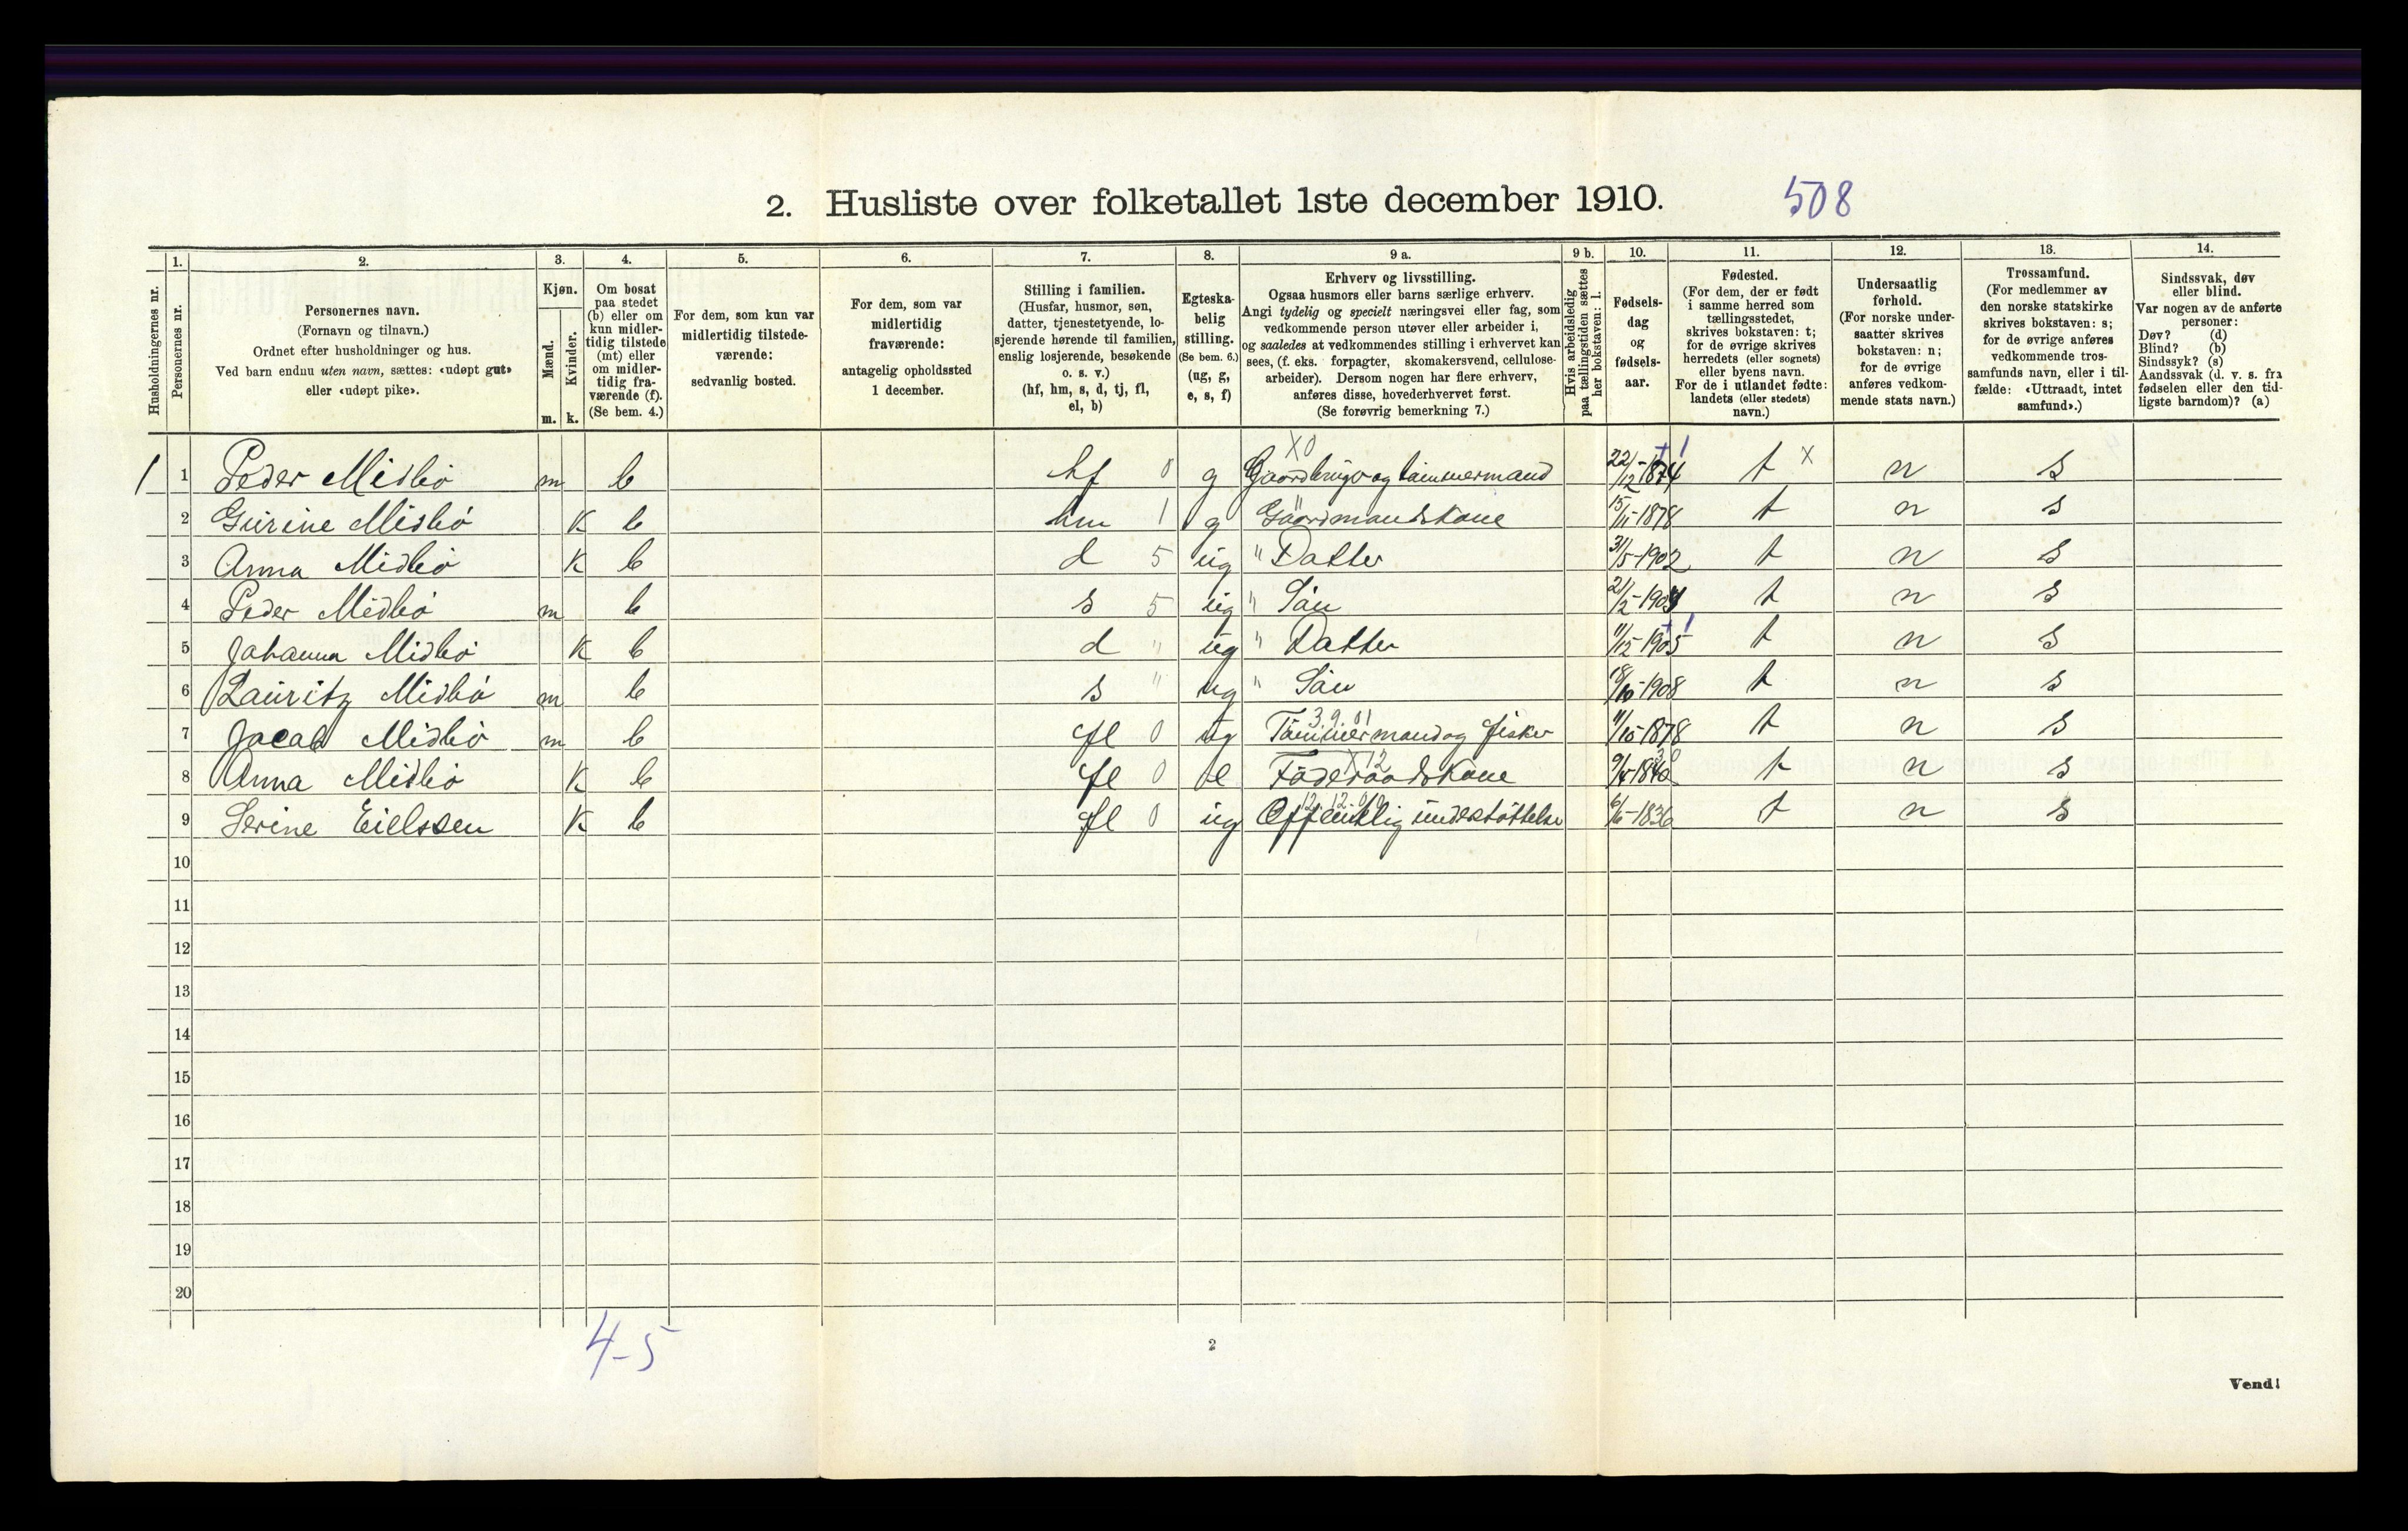 2. Husliste over folketallet 1ste december 1910. 508
Husholdningernes nr.
1. Personernes nr.
2. Personernes navn.
(Fornavn og tilnavn.)
Ordnet efter husholdninger og hus.
Ved barn endnu uten navn, sættes: «udøpt gut»
eller «udøpt pike».
3. Kjøn.
Mænd. m.
Kvinder. k.
4. Om bosat
paa stedet
(b) eller om
kun midler-
tidig tilstede
(mt) eller
om midler-
tidig fra-
værende (f).
(Se bem. 4.)
5. For dem, som kun var
midlertidig tilstede-
værende:
sedvanlig bosted.
6. For dem, som var
midlertidig
fraværende:
antagelig opholdssted
1 december.
7. Stilling i familien.
(Husfar, husmor, søn,
datter, tjenestetyende, lo-
sjerende hørende til familien,
enslig losjerende, besøkende
o. s. v.)
(hf, hm, s, d, tj, fl,
el, b)
8. Egteska-
belig
stilling.
(Se bem. 6.)
(ug, g,
e, s, f)
9 a. Erhverv og livsstilling.
Ogsaa husmors eller barns særlige erhverv.
Angi tydelig og specielt næringsvei eller fag, som
vedkommende person utøver eller arbeider i,
og saaledes at vedkommendes stilling i erhvervet kan
sees, (f. eks. forpagter, skomakersvend, cellulose-
arbeider). Dersom nogen har flere erhverv,
anføres disse, hovederhvervet først.
(Se forøvrig bemerkning 7.)
9 b. Hvis arbeidsledig
paa tællingstiden sættes
her bokstaven: l.
10. Fødsels-
dag
og
fødsels-
aar.
11. Fødested.
(For dem, der er født
i samme herred som
tællingsstedet,
skrives bokstaven: t;
for de øvrige skrives
herredets (eller sognets)
eller byens navn.
For de i utlandet fødte:
landets (eller stedets)
navn.)
12. Undersaatlig
forhold.
(For norske under-
saatter skrives
bokstaven: n;
for de øvrige
anføres vedkom-
mende stats navn.)
13. Trossamfund.
(For medlemmer av
den norske statskirke
skrives bokstaven: s;
for de øvrige anføres
vedkommende tros-
samfunds navn, eller i til-
fælde: «Uttraadt, intet
samfund».)
14. Sindssvak, døv
eller blind.
Var nogen av de anførte
personer:
Døv? (d)
Blind? (b)
Sindssyk? (s)
Aandssvak (d. v. s. fra
fødselen eller den tid-
ligste barndom)? (a)
X0
1 1 Peder Midbö m b hf 0 g Gaardbruger og tømmermand 22/12-1874 t X n s
2 Gurine Midbö K b hm 1 g Gaardmandskone 15/11-1878 t n s
3 Anna Midbö K b d 5 ug " Datter 31/5-1902 t n s
4 Peder Midbö m b s 5 ug " Sön t n s
5 Johanna Midbö K b d " ug " Datter 11/12-1905 t n s
6 Lauritz Midbö m b s " ug " Sön 18/10-1908 t n s
3.9.01
7 Jacob Midbö m b fl 0 ug Tömmermand og fisker 11/10-1878 t n s
X12
8 Anna Midbö K b fl 0 e Föderaadskone t n s
12.12.00
9 Serine Eielssen K b fl 0 ug Offentlig understöttelse 6/6-1836 t n s
10
11
12
13
14
15
16
17
18
19
20
4-5
2
Vend!